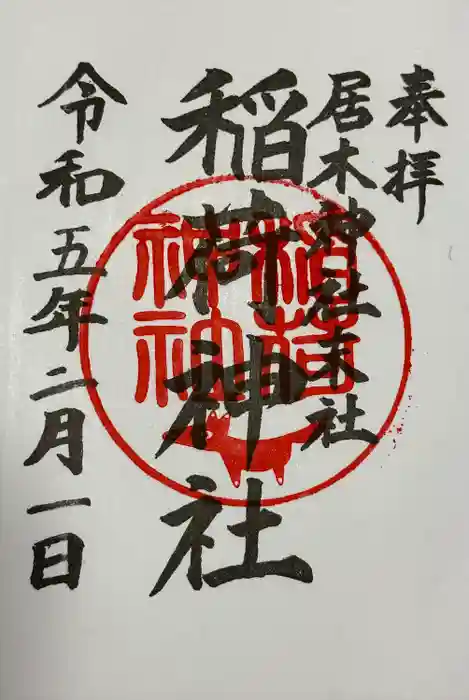 奉拝
居木神社末社
稲荷神社
令和五年二月一日
稲荷
神社